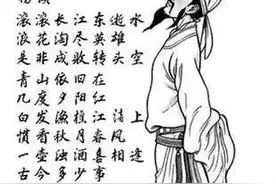 滚滚长江东逝水
浪花淘尽英雄
是非成败转头空
青山依旧在
几度夕阳红
白发渔樵江渚上
惯看秋月春风
一壶浊酒喜相逢
古今多少事